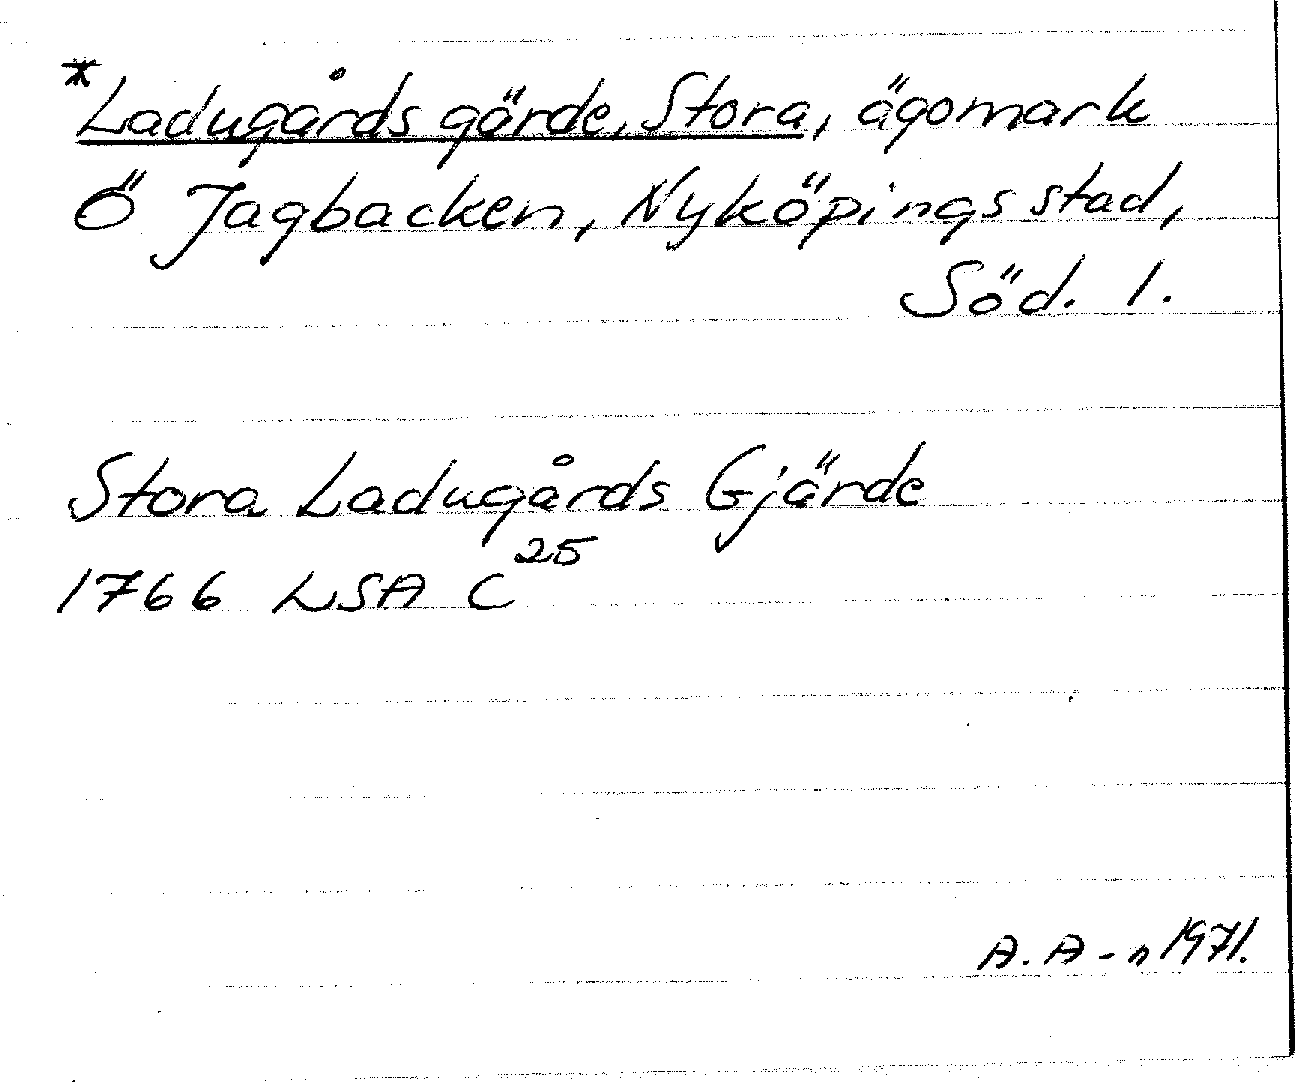 *Ladugårdsgärde, Stora, ägomark
Ö Jagbacken, Nyköpings stad,
Söd. l.
Stora Ladugårds Gjärde
1766 LSA C²⁵
A. A-n 1971.